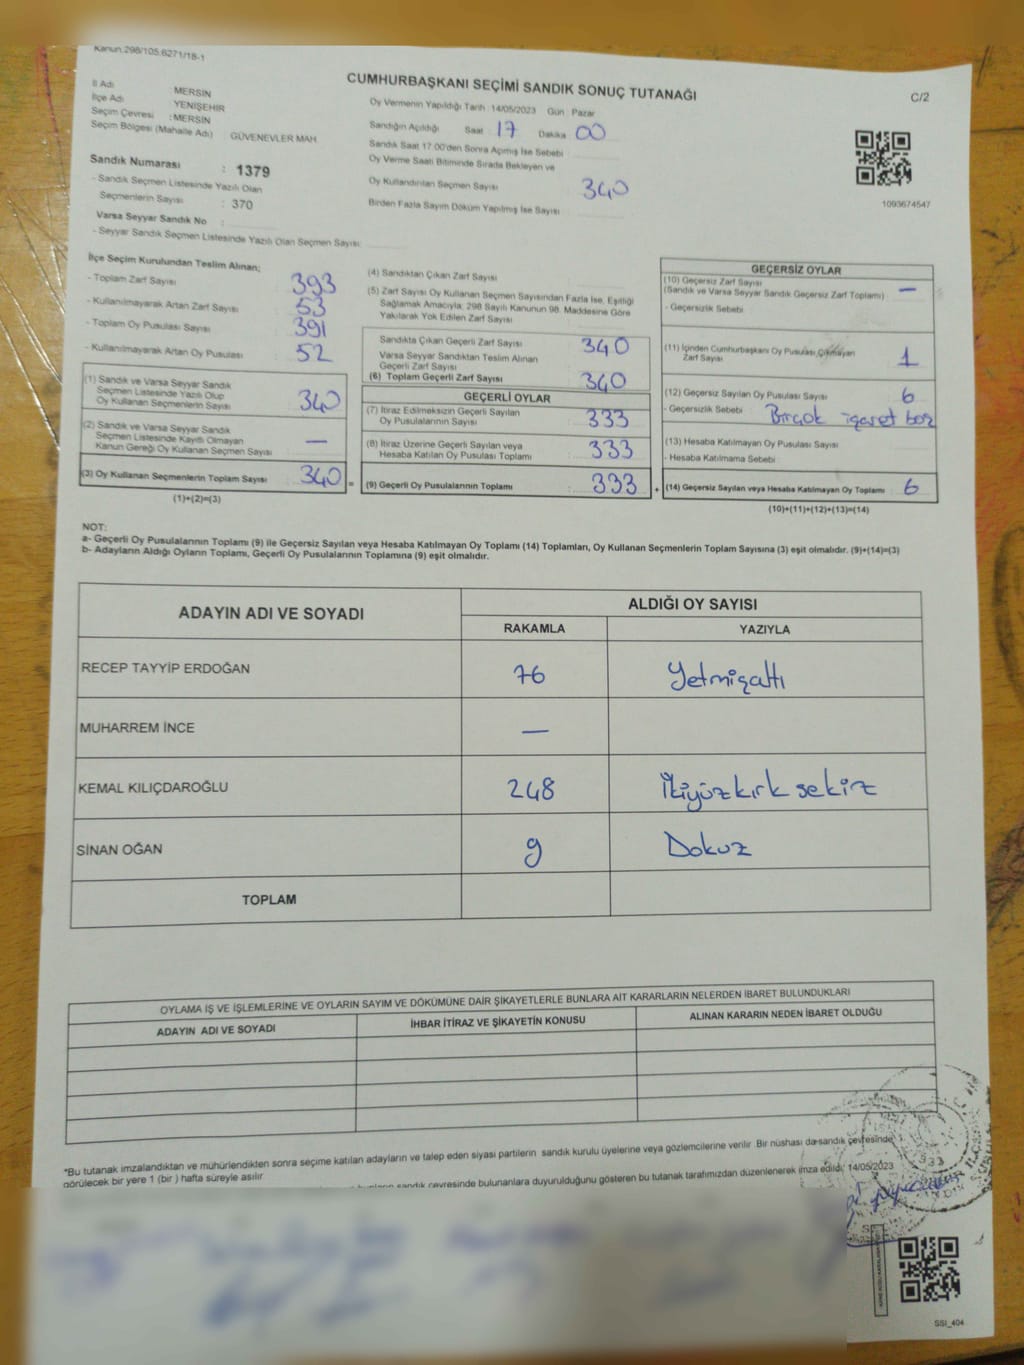 Kanun.298/105,6271/18-1
CUMHURBAŞKANI SEÇİMİ SANDIK SONUÇ TUTANAĞI
C/2
İl Adı : MERSİN
İlçe Adı YENİŞEHİR
Seçim Çevresi : MERSİN
Seçim Bölgesi (Mahalle Adı) GÜVENEVLER MAH
Sandık Numarası : 1379
- Sandık Seçmen Listesinde Yazılı Olan
Seçmenlerin Sayısı : 370
Varsa Seyyar Sandık No :
- Seyyar Sandık Seçmen Listesinde Yazılı Olan Seçmen Sayısı:
Oy Vermenin Yapıldığı Tarih :14/05/2023 Gün : Pazar
Sandığın Açıldığı Saat 17 Dakika 00
Sandık Saat 17.00'den Sonra Açımış İse Sebebi
Oy Verme Saati Bitiminde Sırada Bekleyen ve
Oy Kullandırılan Seçmen Sayısı 340
Birden Fazla Sayım Döküm Yapılmış İse Sayısı
1093674547
İlçe Seçim Kurulundan Teslim Alınan;
- Toplam Zarf Sayısı 393
- Kullanılmayarak Artan Zarf Sayısı 53
- Toplam Oy Pusulası Sayısı 391
- Kullanılmayarak Artan Oy Pusulası 52
(1) Sandık ve Varsa Seyyar Sandık
Seçmen Listesinde Yazılı Olup
Oy Kullanan Seçmenlerin Sayısı 340
(2) Sandık ve Varsa Seyyar Sandık
Seçmen Listesinde Kayıtlı Olmayan
Kanun Gereği Oy Kullanan Seçmen Sayısı : —
(3) Oy Kullanan Seçmenlerin Toplam Sayısı : 340 =
(1)+(2)=(3)
(4) Sandıktan Çıkan Zarf Sayısı
(5) Zarf Sayısı Oy Kullanan Seçmen Sayısından Fazla İse, Eşitliği
Sağlamak Amacıyla; 298 Sayılı Kanunun 98. Maddesine Göre
Yakılarak Yok Edilen Zarf Sayısı
Sandıkta Çıkan Geçerli Zarf Sayısı 340
Varsa Seyyar Sandıktan Teslim Alınan
Geçerli Zarf Sayısı
(6) Toplam Geçerli Zarf Sayısı 340
GEÇERLİ OYLAR
(7) İtiraz Edilmeksizin Geçerli Sayılan
Oy Pusulalarının Sayısı 333
(8) İtiraz Üzerine Geçerli Sayılan veya
Hesaba Katılan Oy Pusulası Toplamı 333
(9) Geçerli Oy Pusulalarının Toplamı : 333 +
GEÇERSİZ OYLAR
(10) Geçersiz Zarf Sayısı
(Sandık ve Varsa Seyyar Sandık Geçersiz Zarf Toplamı) : —
- Geçersizlik Sebebi
(11) İçinden Cumhurbaşkanı Oy Pusulası Çıkmayan
Zarf Sayısı 1
(12) Geçersiz Sayılan Oy Pusulası Sayısı 6
- Geçersizlik Sebebi Birçok işaret boş
(13) Hesaba Katılmayan Oy Pusulası Sayısı
- Hesaba Katılmama Sebebi
(14) Geçersiz Sayılan veya Hesaba Katılmayan Oy Toplamı : 6
(10)+(11)+(12)+(13)=(14)
NOT:
a- Geçerli Oy Pusulalarının Toplamı (9) ile Geçersiz Sayılan veya Hesaba Katılmayan Oy Toplamı (14) Toplamları, Oy Kullanan Seçmenlerin Toplam Sayısına (3) eşit olmalıdır. (9)+(14)=(3)
b- Adayların Aldığı Oyların Toplamı, Geçerli Oy Pusulalarının Toplamına (9) eşit olmalıdır.
ADAYIN ADI VE SOYADI
ALDIĞI OY SAYISI
RAKAMLA YAZIYLA
RECEP TAYYİP ERDOĞAN 76 Yetmişaltı
MUHARREM İNCE —
KEMAL KILIÇDAROĞLU 248 İkiyüzkırk sekiz
SİNAN OĞAN 9 Dokuz
TOPLAM
OYLAMA İŞ VE İŞLEMLERİNE VE OYLARIN SAYIM VE DÖKÜMÜNE DAİR ŞİKAYETLERLE BUNLARA AİT KARARLARIN NELERDEN İBARET BULUNDUKLARI
ADAYIN ADI VE SOYADI İHBAR İTİRAZ VE ŞİKAYETİN KONUSU ALINAN KARARIN NEDEN İBARET OLDUĞU
*Bu tutanak imzalandıktan ve mühürlendikten sonra seçime katılan adayların ve talep eden siyasi partilerin sandık kurulu üyelerine veya gözlemcilerine verilir. Bir nüshası da sandık çevresinde
görülecek bir yere 1 (bir ) hafta süreyle asılır
sandık çevresinde bulunanlara duyurulduğunu gösteren bu tutanak tarafımızdan düzenlenerek imza edildi. 14/05/2023
SSI_404